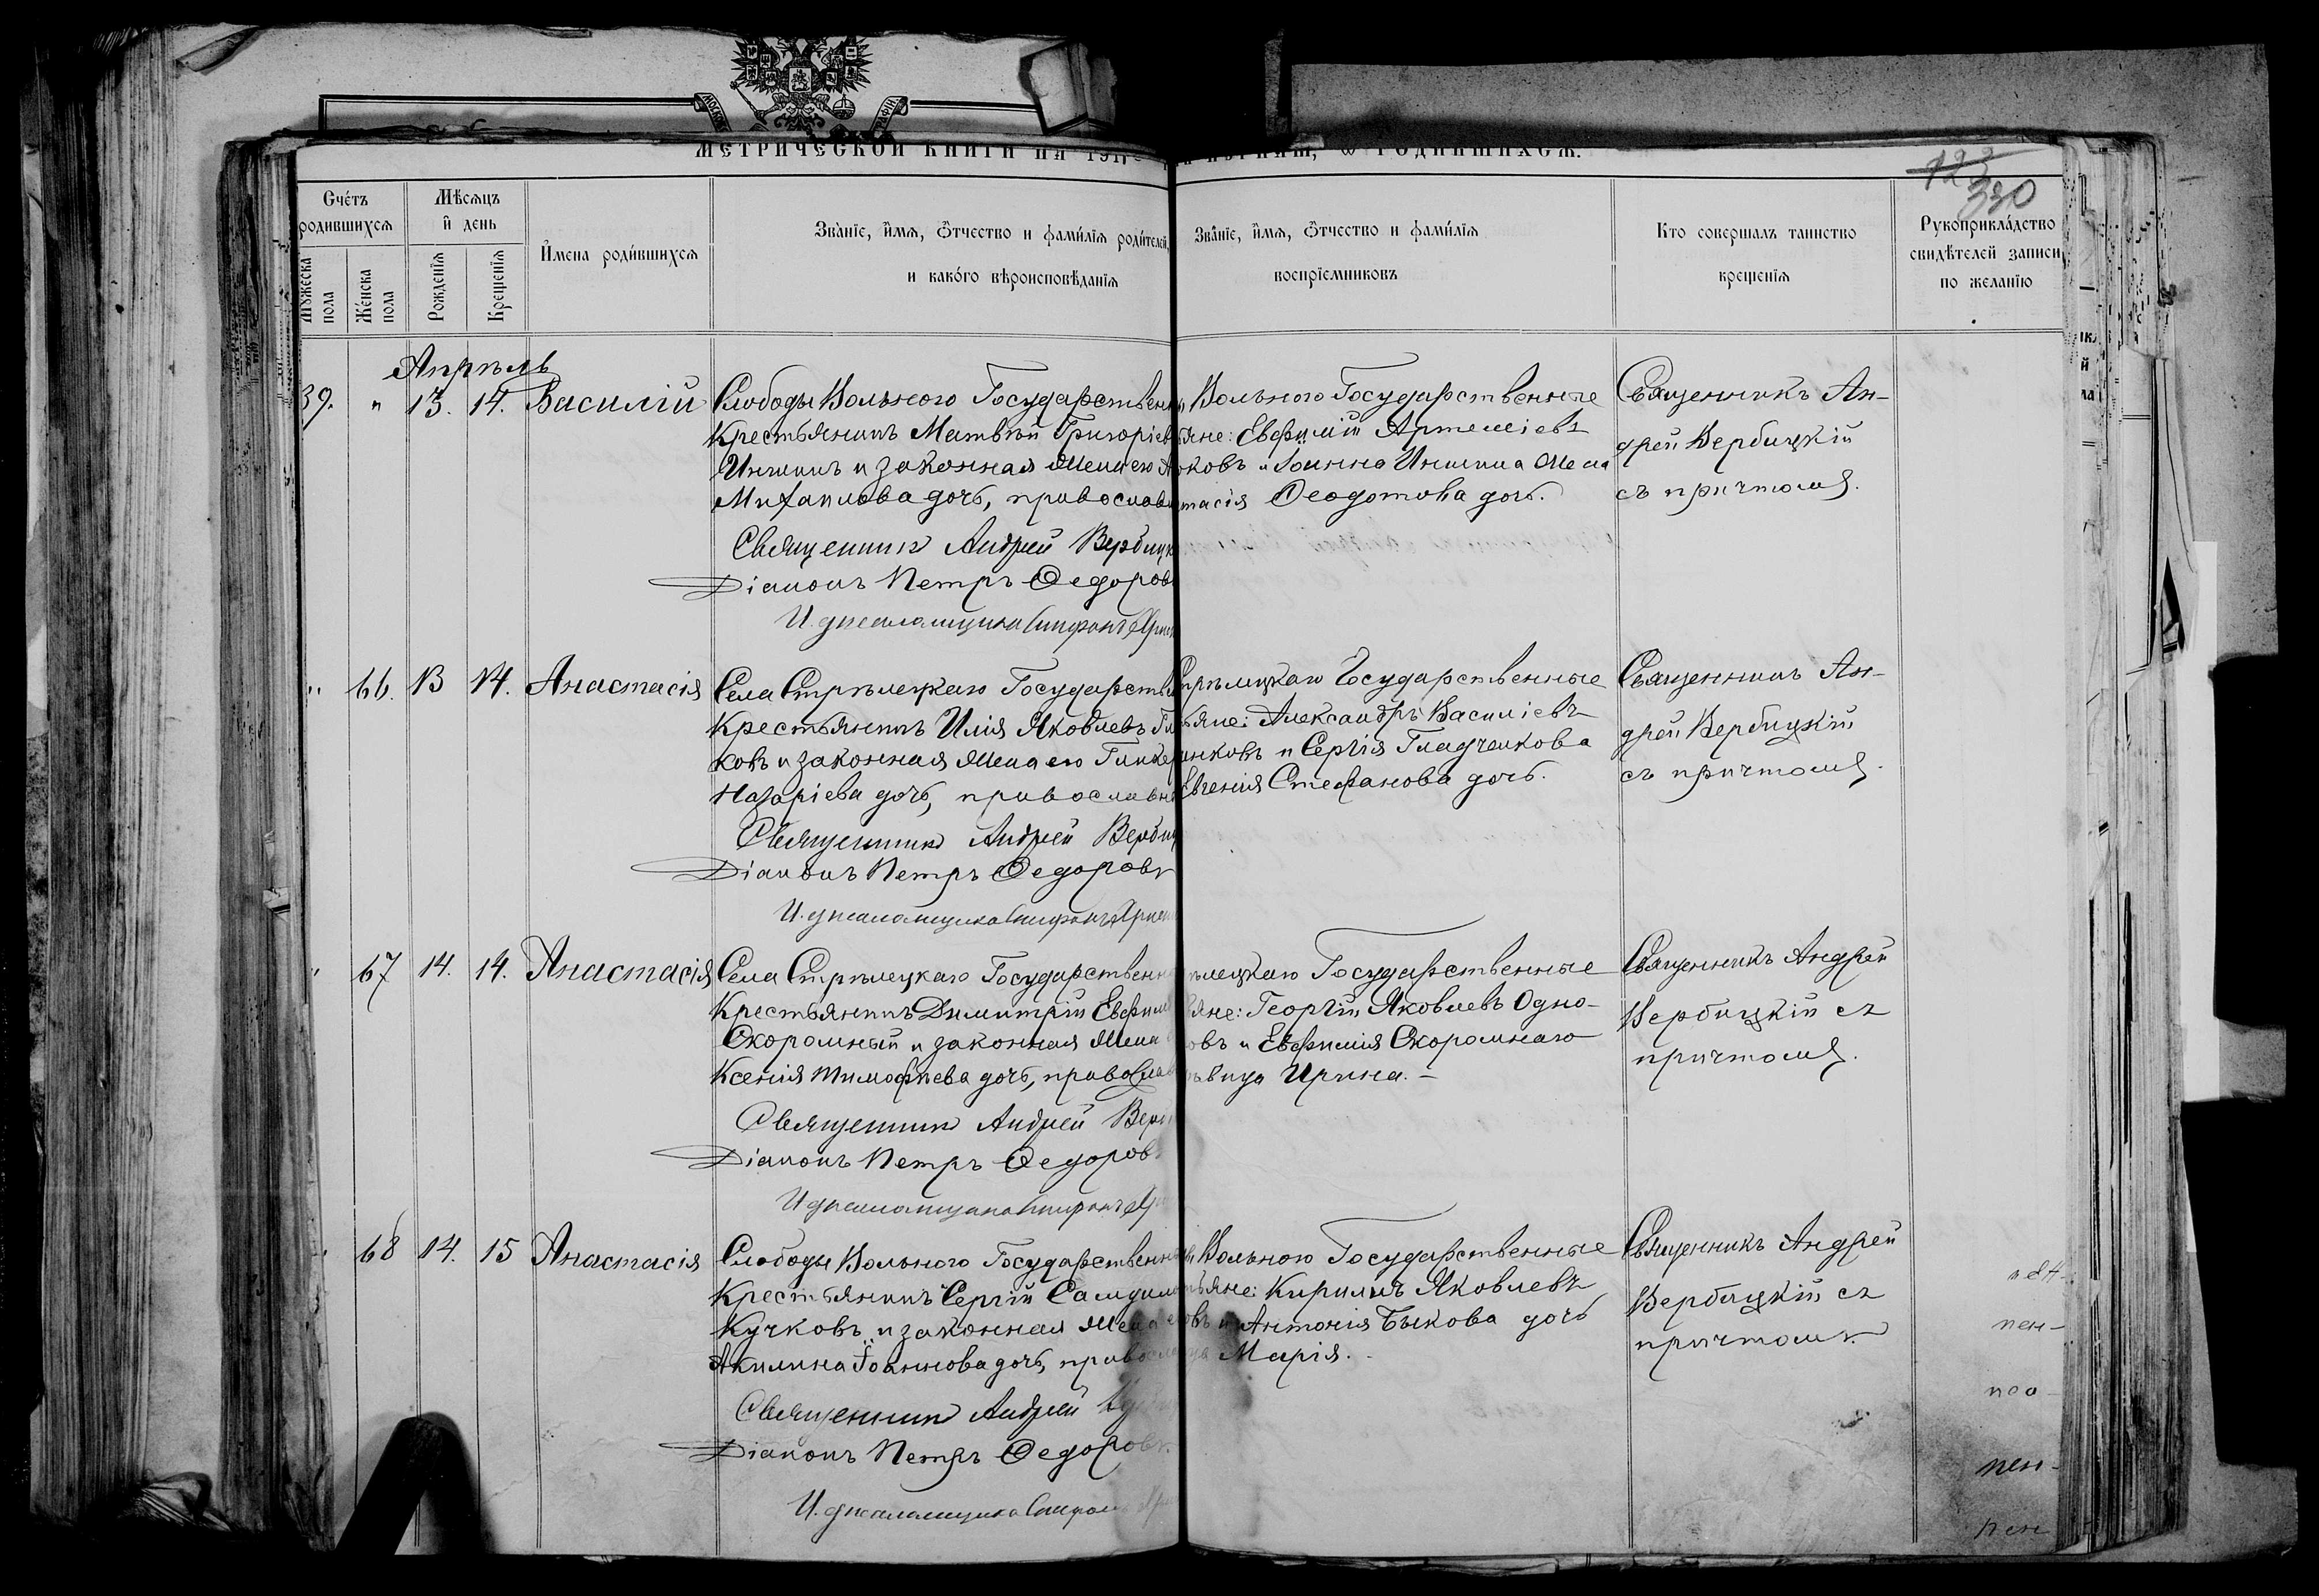 МЕТРИЧЕСКОЙ КНИГИ НА 191
РОДИВШИХСѦ.
123
330
Счéтъ родившихсѧ
Мѣсѧцъ и день
Мꙋжеска пола
Жéнска пола
Рожденїѧ
Крещенїѧ
Имена родившихсѧ
Звáнїе, имѧ, ѿтчество и фамилїѧ родителей,
и какóго вѣроисповѣданїѧ
Звáнїе, имѧ, ѿтчество и фамилїѧ
воспрїемниковъ
Кто совершалъ таинство
крещенїѧ
Рукоприклáдство
свидѣтелей записи
по желанїю
Апрѣль
39. " 13. 14. Василій
Слободы Вольного Государствен
Крестьянинъ Матвѣй Григоріев
и законная жена его
Михаилова дочь, православ
Священникъ Андрей Вербицк
Діаконъ Петръ Ѳедоровъ
И. д. псаломщика
Вольного Государственные
яне: Евфимій Артеміевъ
ковъ и Іоанна жена
тасія Ѳеодотова дочь.
Священникъ Ан-
дрей Вербицкій
съ причтомъ.
" 66. 13 14. Анастасія
Села Стрѣлецкаго Государств
Крестьянинъ Илія Яковлевъ
ковъ и законная жена его Глике
Назаріева дочь, православн
Священникъ Андрей Вербиц
Діаконъ Петръ Ѳедоровъ
И. д. псаломщика
трѣлецкаго Государственные
яне: Александръ Василіевъ
нковъ и Сергія Гладченкова
Евгенія Стефанова дочь.
Священникъ Ан-
дрей Вербицкій
съ причтомъ.
" 67 14. 14. Анастасія
Села Стрѣлецкаго Государственн
Крестьянинъ Димитрій Евфим
Скоромный и законная жена
Ксенія Тимофѣева дочь, православ
Священникъ Андрей Верб
Діаконъ Петръ Ѳедоров
И. д. псаломщика
ѣлецкаго Государственные
яне: Георгій Яковлевъ Одно-
овъ и Евфимія Скоромнаго
ѣвица Ирина. —
Священникъ Андрей
Вербицкій съ
причтомъ.
" 68 14. 15 Анастасія
Слободы Вольного Государственн
Крестьянинъ Сергій
Кучковъ и законная жена
Акилина Іоаннова дочь, правосла
Священникъ Андрей
Діаконъ Петръ Ѳедоровъ.
И. д. псаломщика
Вольного Государственные
ьяне: Кириллъ Яковлевъ
овъ и Антонія Быкова дочь
Марія.
Священникъ Андрей
Вербицкій съ
причтомъ.